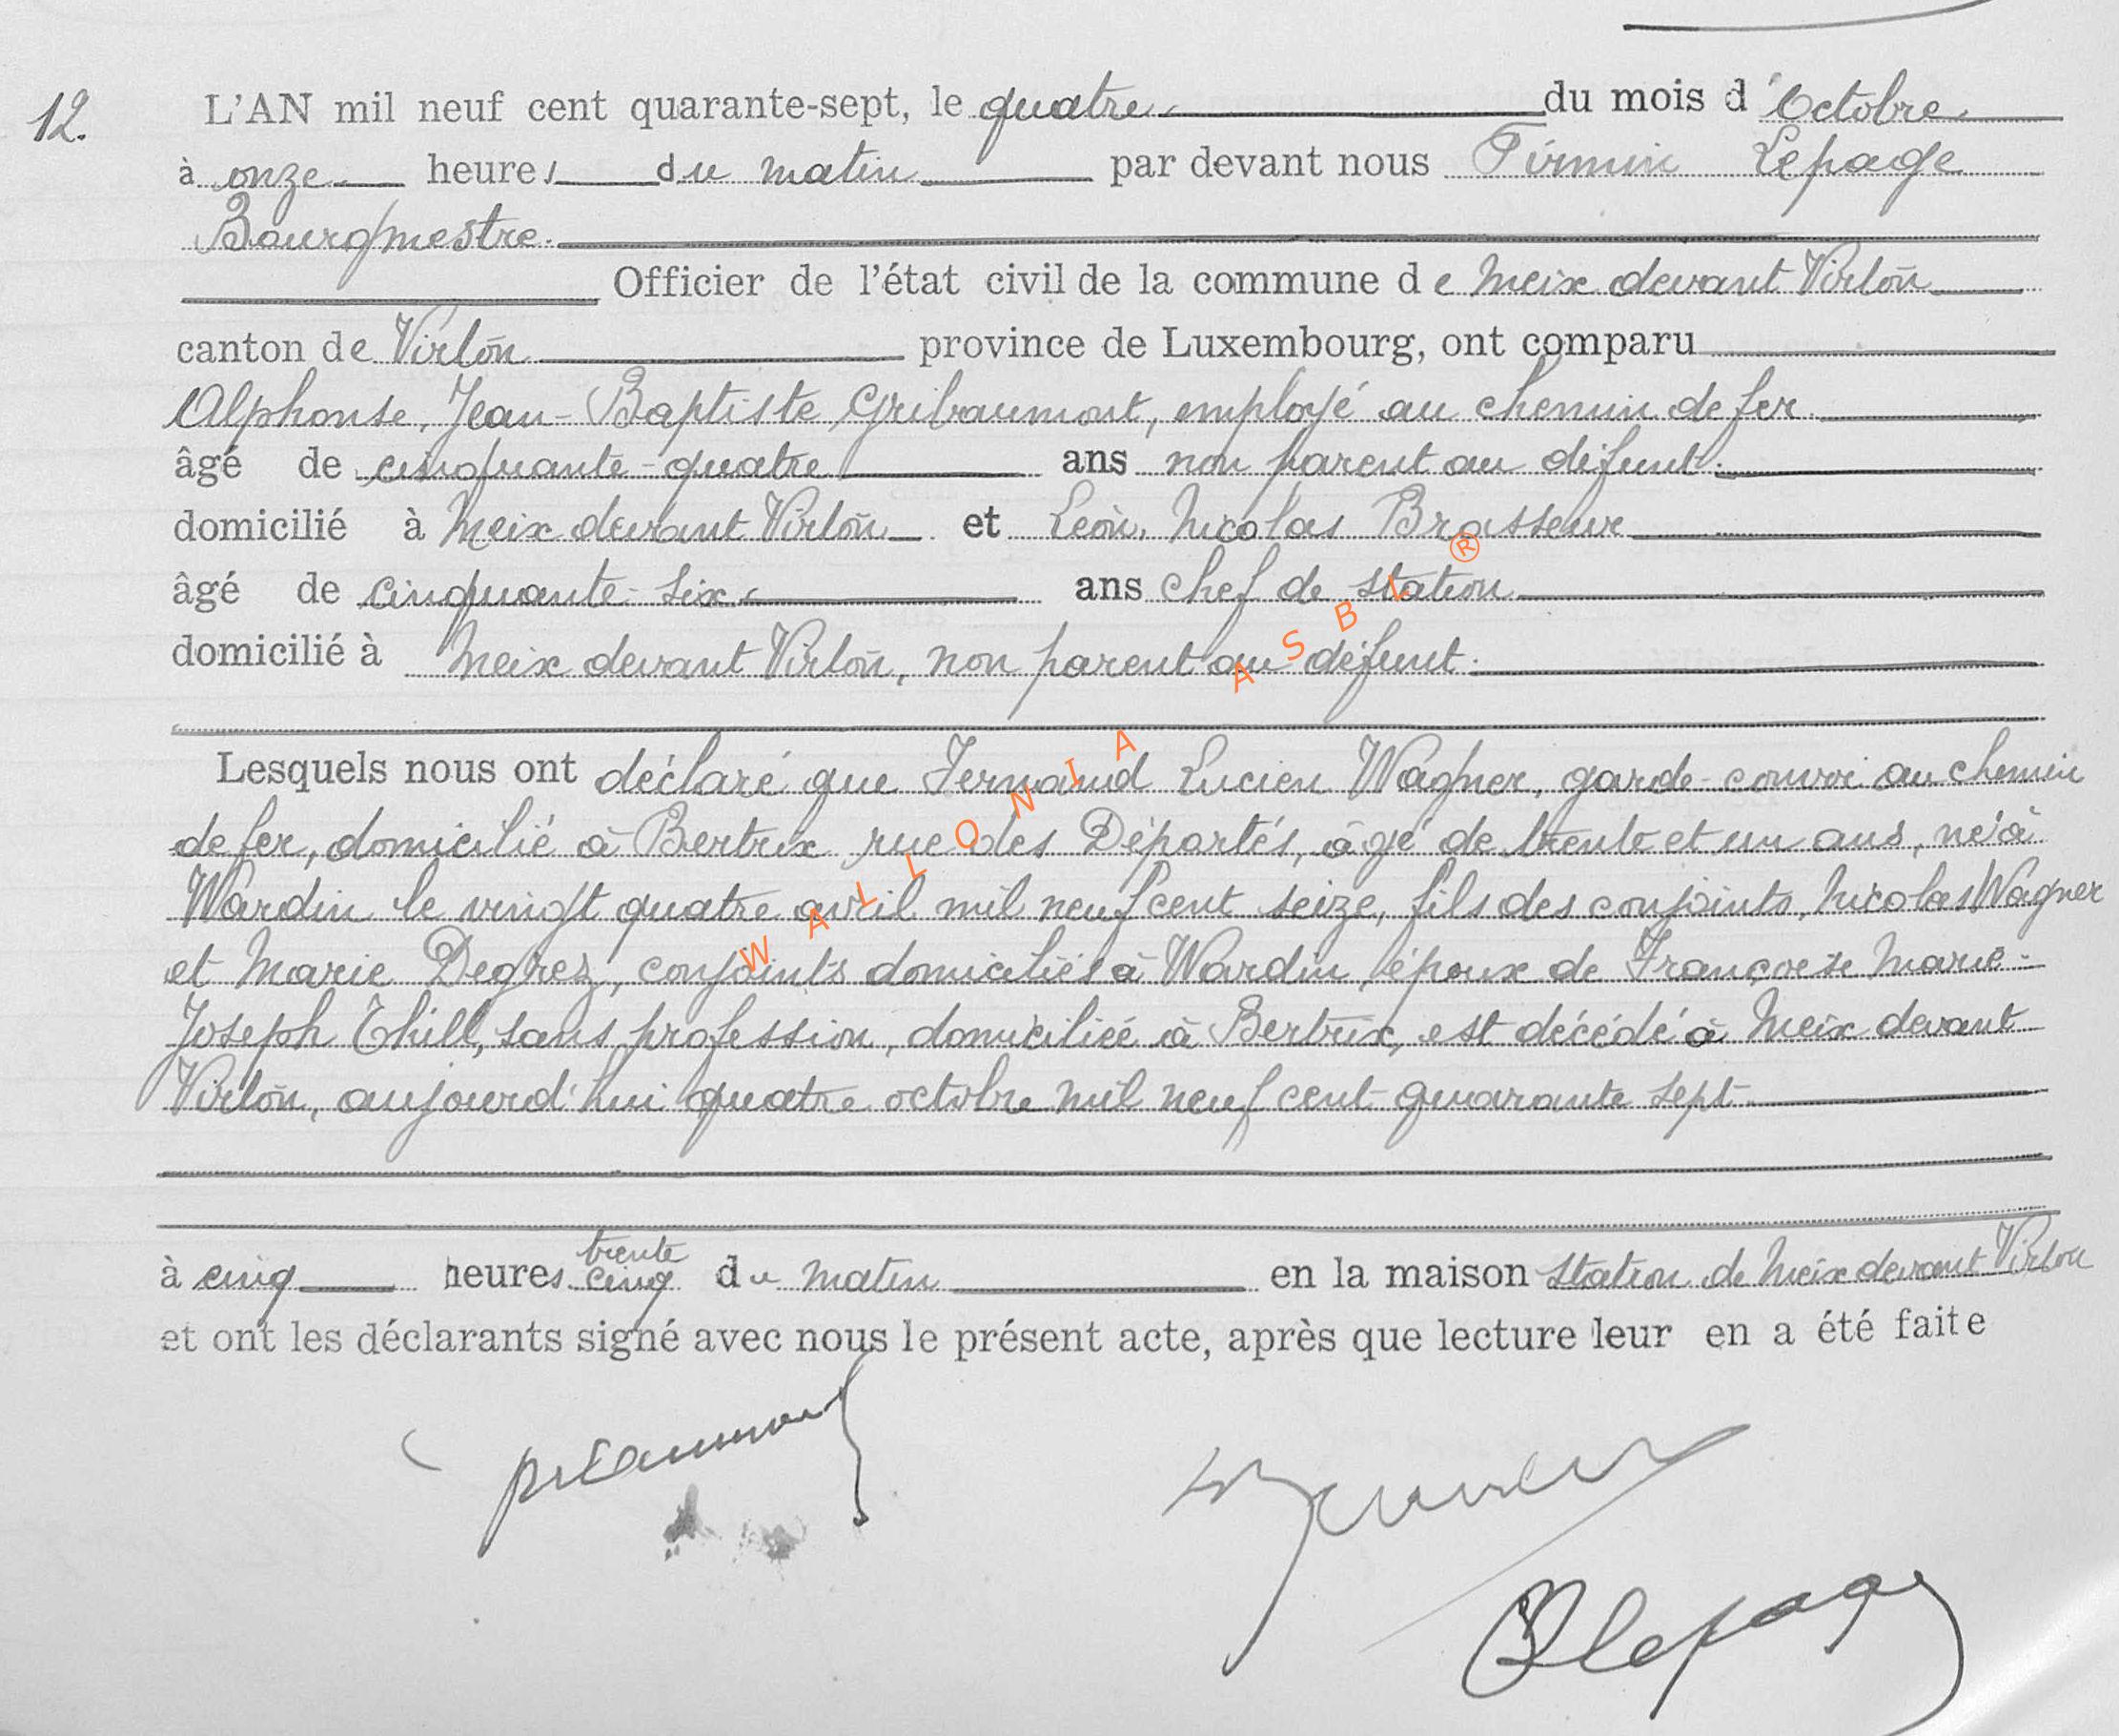 12. L'AN mil neuf cent quarante-sept, le quatre du mois d'Octobre
à onze heures du matin par devant nous Firmin Lepage
Bourgmestre.
Officier de l'état civil de la commune de Meix devant Virton
canton de Virton province de Luxembourg, ont comparu
Alphonse, Jean-Baptiste Gribaumont, employé au chemin de fer.
âgé de cinquante-quatre ans non parent au défunt.
domicilié à Meix devant Virton et Léon, Nicolas Brasseur
âgé de cinquante-six ans chef de station
domicilié à Meix devant Virton, non parent au défunt.
Lesquels nous ont déclaré que Fernand Lucien Wagner, garde-convoi au chemin
de fer, domicilié à Bertrix rue des Déportés, âgé de trente et un ans, né à
Wardin le vingt quatre avril mil neuf cent seize, fils des conjoints, Nicolas Wagner
et Marie Degrez, conjoints domiciliés à Wardin, époux de Françoise Marie-
Joseph Thill, sans profession, domiciliée à Bertrix, est décédé à Meix devant
Virton, aujourd'hui quatre octobre mil neuf cent quarante sept.
trente
à cinq heures cinq du matin en la maison station de Meix devant Virton
et ont les déclarants signé avec nous le présent acte, après que lecture leur en a été faite
Lepage
WALLONIA ASBL ®